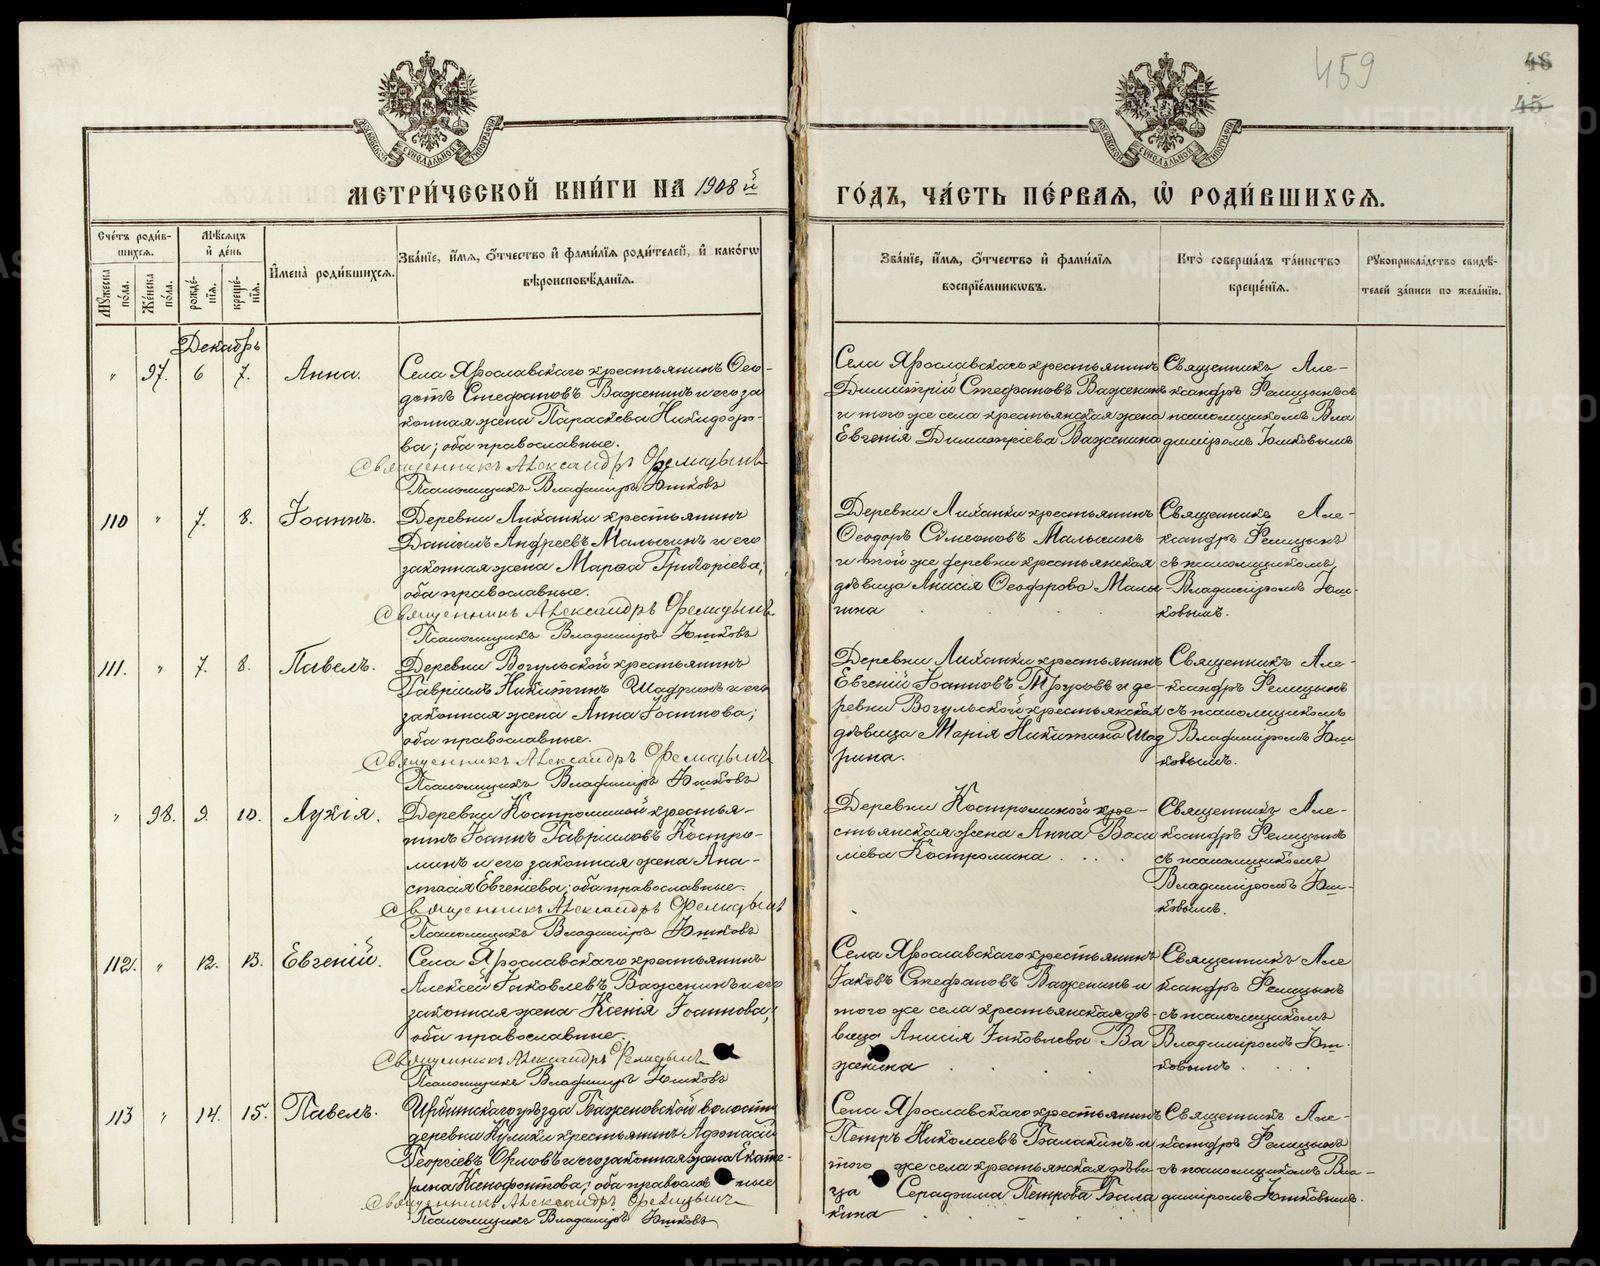 459
48
45
МОСКОВСКОЙ СѴНОДАЛЬНОЙ ТИПОГРАФІИ
МОСКОВСКОЙ СѴНОДАЛЬНОЙ ТИПОГРАФІИ
МЕТРИ́ЧЕСКОЙ КНИ́ГИ НА 1908 й
ГО́ДЪ, ЧА́СТЬ ПЕ́РВАЯ, Ѡ РОДИ́ВШИХСЯ.
Сче́тъ роди́вшихся.
Мꙋжеска по́ла.
Же́нска по́ла.
Мѣ́сяцъ и де́нь
рожде́нїя.
креще́нїя.
И́мена̀ роди́вшихся.
Зва́нїе, и́мя, ѻ́тчество и фами́лїя роди́телей, и како́гѡ
вѣроисповѣ́данїя.
Зва́нїе, и́мя, ѻ́тчество и фами́лїя
воспрїе́мникѡвъ.
Кто̀ соверша́лъ та́инство
креще́нїя.
Рꙋкоприкла́дство свидѣ́-
телей за́писи по жела́нїю.
Декабрь
" 97. 6 7. Анна.
Села Ярославскаго крестьянинъ Ѳео-
дотъ Стефановъ Важенинъ и его за
конная жена Параскева Никифоро-
ва; оба православные.
Священникъ Александръ Фелицынъ
Псаломщикъ Владиміръ Юшковъ
Села Ярославскаго крестьянинъ
Димитрій Стефановъ Важенинъ
и того же села крестьянская жена
Евгенія Димитріева Важенина
Священникъ Але-
ксандръ Фелицынъ съ
псаломщикомъ Вла
диміромъ Юшковымъ
110 " 7. 8. Іоаннъ.
Деревни Лиханки крестьянинъ
Даніилъ Андреевъ Малыгинъ и его
законная жена Марѳа Григоріева,
оба православные.
Священникъ Александръ Фелицынъ
Псаломщикъ Владиміръ Юшковъ
Деревни Лиханки крестьянинъ
Ѳеодоръ Сѵмеоновъ Малыгинъ
и той же деревни крестьянская
дѣвица Анисія Ѳеодорова Малы
гина
Священникъ Але-
ксандръ Фелицынъ
съ псаломщикомъ
Владиміромъ Юш-
ковымъ.
111. " 7. 8. Павелъ.
Деревни Вогульской крестьянинъ
Гавріилъ Никитинъ Шадринъ и его
законная жена Анна Іоаннова;
оба православные.
Священникъ Александръ Фелицынъ
Псаломщикъ Владиміръ Юшковъ
Деревни Лиханки крестьянинъ
Евгеній Іоанновъ и де-
ревни Вогульской крестьянская
дѣвица Марія Никитина Шад
рина.
Священникъ Але-
ксандръ Фелицынъ
съ псаломщикомъ
Владиміромъ Юш
ковымъ.
" 98. 9. 10. Лукія.
Деревни Костроминой крестья-
нинъ Іоаннъ Гавриловъ Костро-
минъ и его законная жена Ана-
стасія Евгеніева; оба православные.
Священникъ Александръ Фелицынъ
Псаломщикъ Владиміръ Юшковъ
Деревни Костроминой кре-
стьянская жена Анна Васи
ліева Костромина
Священникъ Але-
ксандръ Фелицынъ
съ псаломщикомъ
Владиміромъ Юш-
ковымъ.
112. " 12. 13. Евгеній.
Села Ярославскаго крестьянинъ
Алексей Іаковлевъ Важенинъ и его
законная жена Ксенія Іоаннова;
оба православные.
Священникъ Александръ Фелицынъ
Псаломщикъ Владиміръ Юшковъ
Села Ярославскаго крестьянинъ
Іаковъ Стефановъ Важенинъ и
того же села крестьянская дѣ-
вица Анисія Іаковлева Ва
женина
Священникъ Але
ксандръ Фелицынъ
съ псаломщикомъ
Владиміромъ Юш-
ковымъ
113 " 14. 15. Павелъ.
Ирбитскаго уѣзда Баженовской волости
деревни Кулики крестьянинъ Афонасій
Георгіевъ Орловъ и его законная жена Екате-
рина Ксенофонтова; оба православные
Священникъ Александръ Фелицынъ
Псаломщикъ Владиміръ Юшковъ
Села Ярославскаго крестьянинъ
Петръ Николаевъ Балакинъ и
того же села крестьянская дѣви
ца Серафима Петрова Бала
кина
Священникъ Але-
ксандръ Фелицынъ
съ псаломщикомъ Вла-
диміромъ Юшковымъ.